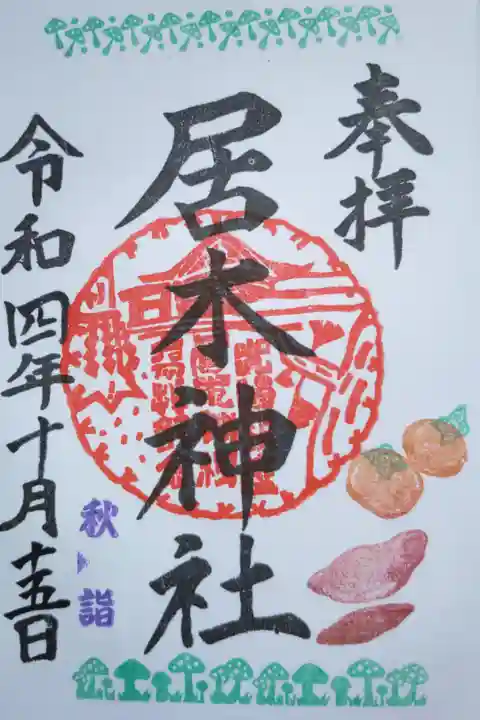 奉拝
居木神社
令和四年十月十五日
秋詣